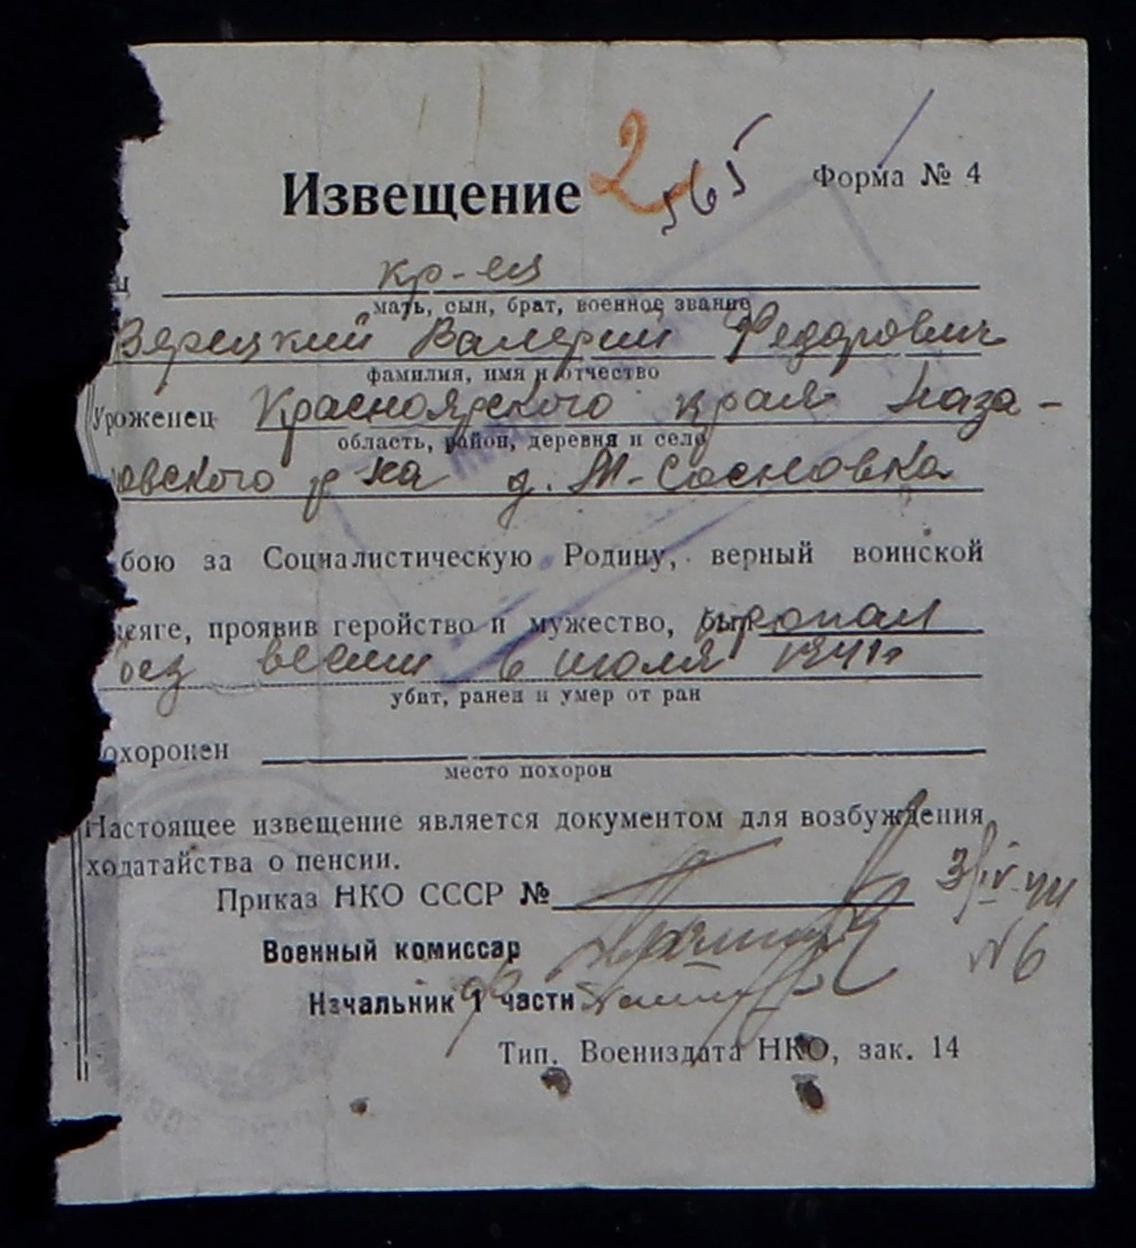 Извещение 2 565 Форма № 4
ц кр-ец
мать, сын, брат, военное звание
Верецкий Валерий Федорович
фамилия, имя и отчество
Уроженец Красноярского края Наза-
область, район, деревня и село
ровского р-на д. М-Сосновка
бою за Социалистическую Родину, верный воинской
исяге, проявив геройство и мужество, был пропал
без вести 6 июля 1941г
убит, ранен и умер от ран
охоронен
место похорон
Настоящее извещение является документом для возбуждения
ходатайства о пенсии.
Приказ НКО СССР №
3/IV-44
Военный комиссар
№6
Начальник 1 части
Тип. Воениздата НКО, зак. 14